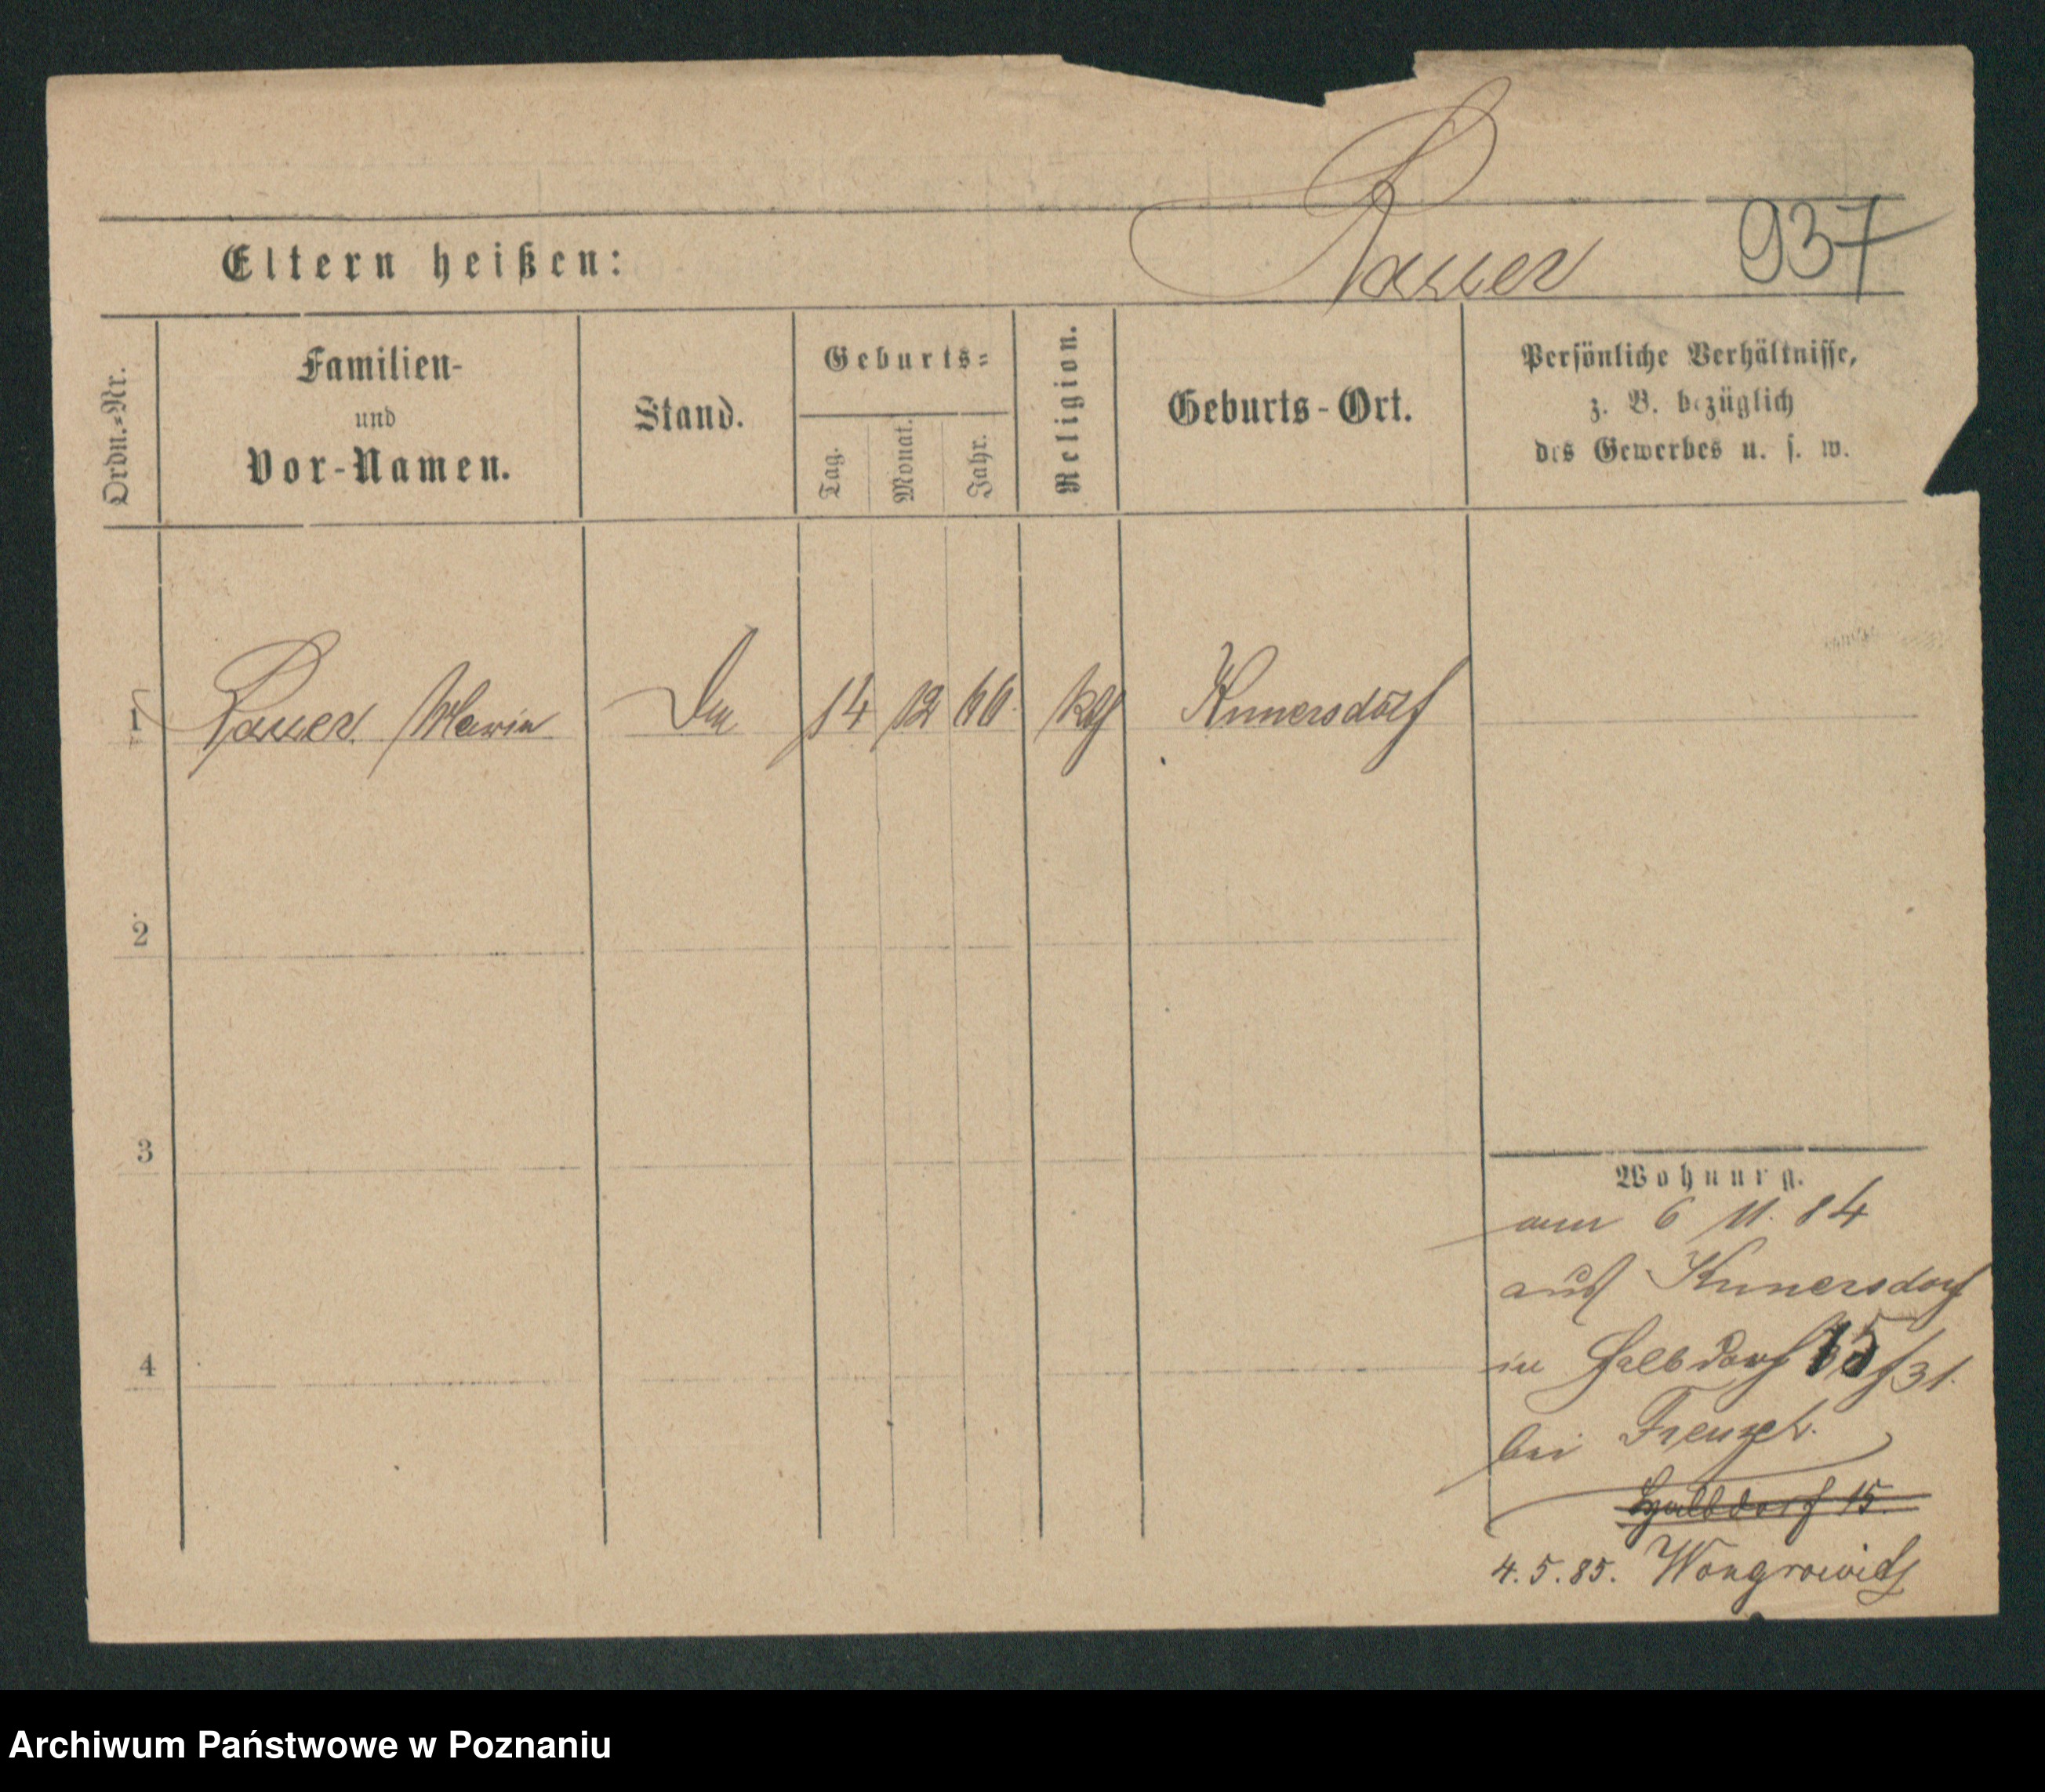 937
Eltern heißen:
Ordn.-Nr.
Familien-
und
Vor-Namen.
Stand.
Geburts=
Tag.
Monat.
Jahr.
Religion.
Geburts-Ort.
Persönliche Verhältnisse,
z. B. bezüglich
des Gewerbes u. s. w.
1 14 12 66 Kunersdorf
2
3
4
Wohnung.
am 6 11. 84
aus Kunersdorf
in Halbdorf 15 31.
bei
Halbdorf 15.
4.5.85. Wongrowitz
Archiwum Państwowe w Poznaniu